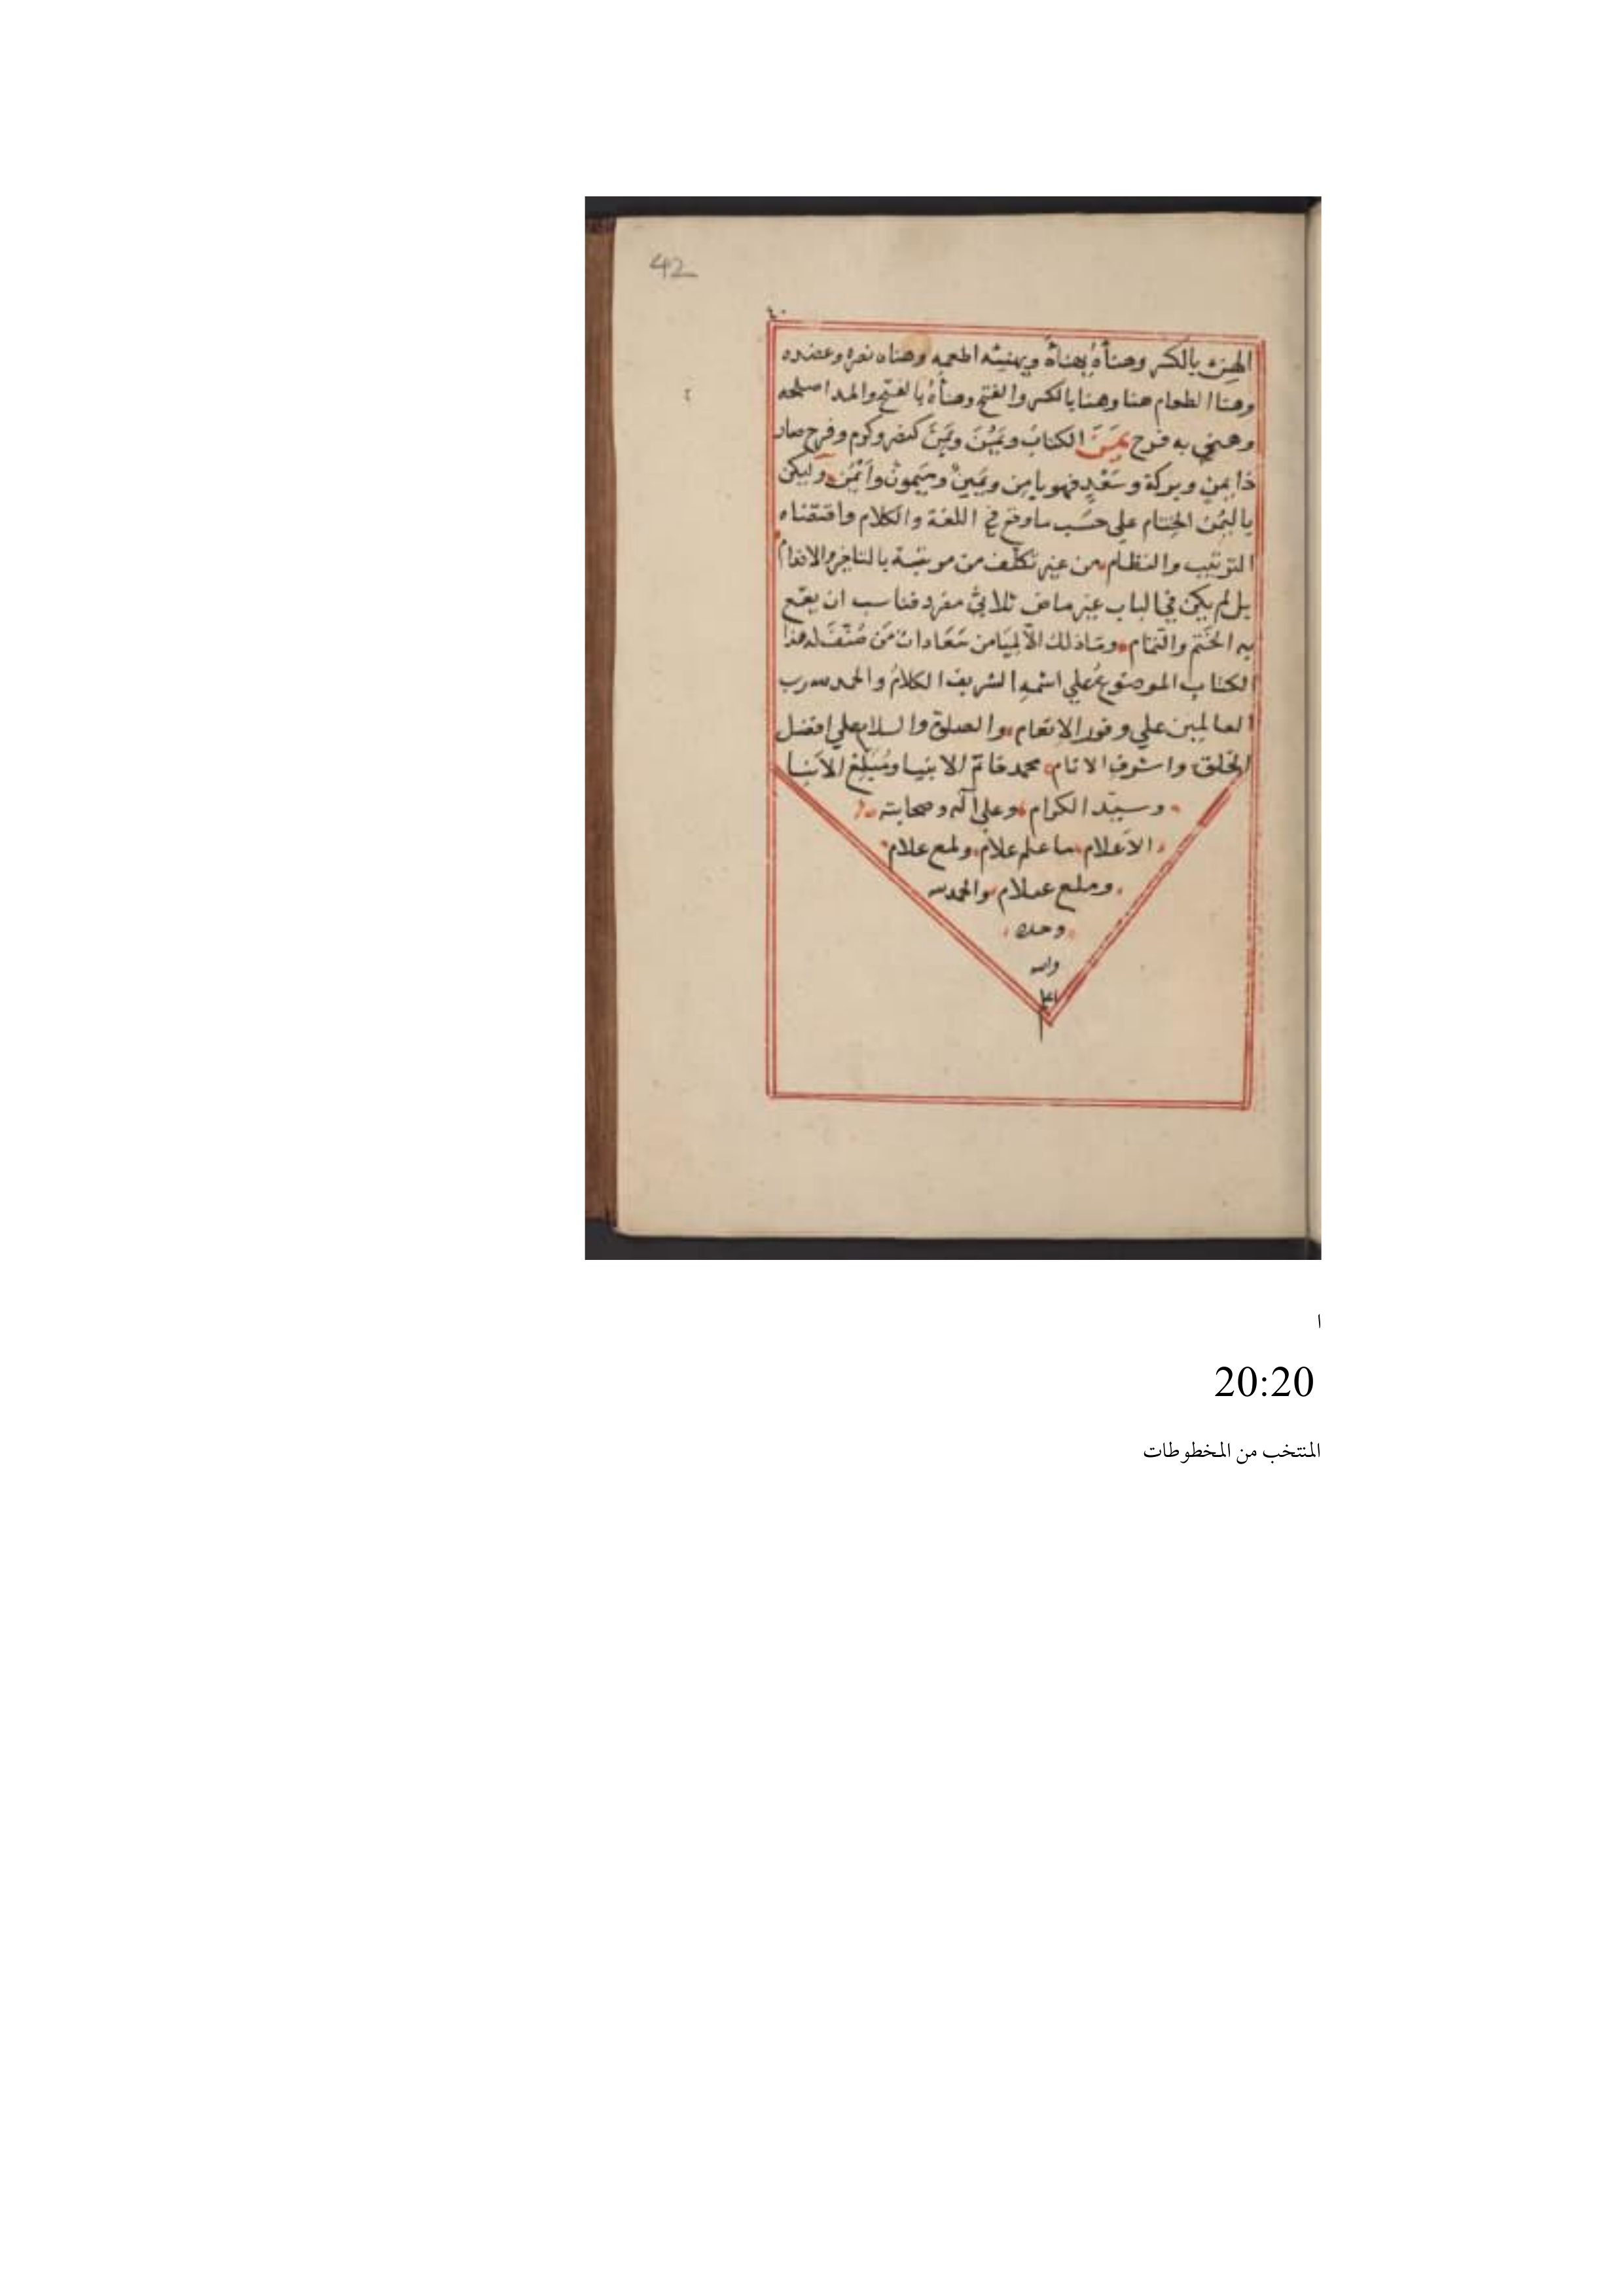 42
٤٠
الهنئ بالكسر وهنأهُ يهنأهُ ويهنئه اطعمه وهناه نصره وعضده
وهنا الطعام هنا وهنا بالكسر والفتح وهنأهُ بالفتح والمد اصلحه
وهني به فرح يَمَنَ الكتابُ ويَمُنَ ويَمِنَ كنصر وكرم وفرح صار
ذا يمن وبركة وسَعْدٍ فهو يامن ويَمينٌ ومَيمونٌ واَيْمَن وليكن
باليُمن الخِتام علي حسَب ما وقع في اللغة والكلام واقتضاه
الترتيب والنظام من غير تكلف من موبنية بالتاخير والاقدام
بل لم يكن في الباب غير ماض ثلاثي مفرد فناسب ان يقع
به الختم والتمام وما ذلك الّا لِمَا من سَعَادات مَن صُنّفَ له هذا
الكتاب الموضوعُ علي اسمهِ الشريف الكلامُ والحمد لله رب
العالمين علي وفور الانعام والصلوة والسلام علي افضل
الخلق واشرف الانام محمد خاتم الانبيا ومُبلّغ الأنبا
وسيّد الكرام وعلي آله وصحابته
الاَعلام ما علم علام ولمع علام
وملع علام والحمد لله
وحده
والله
اعلم
ا
20:20
المنتخب من المخطوطات